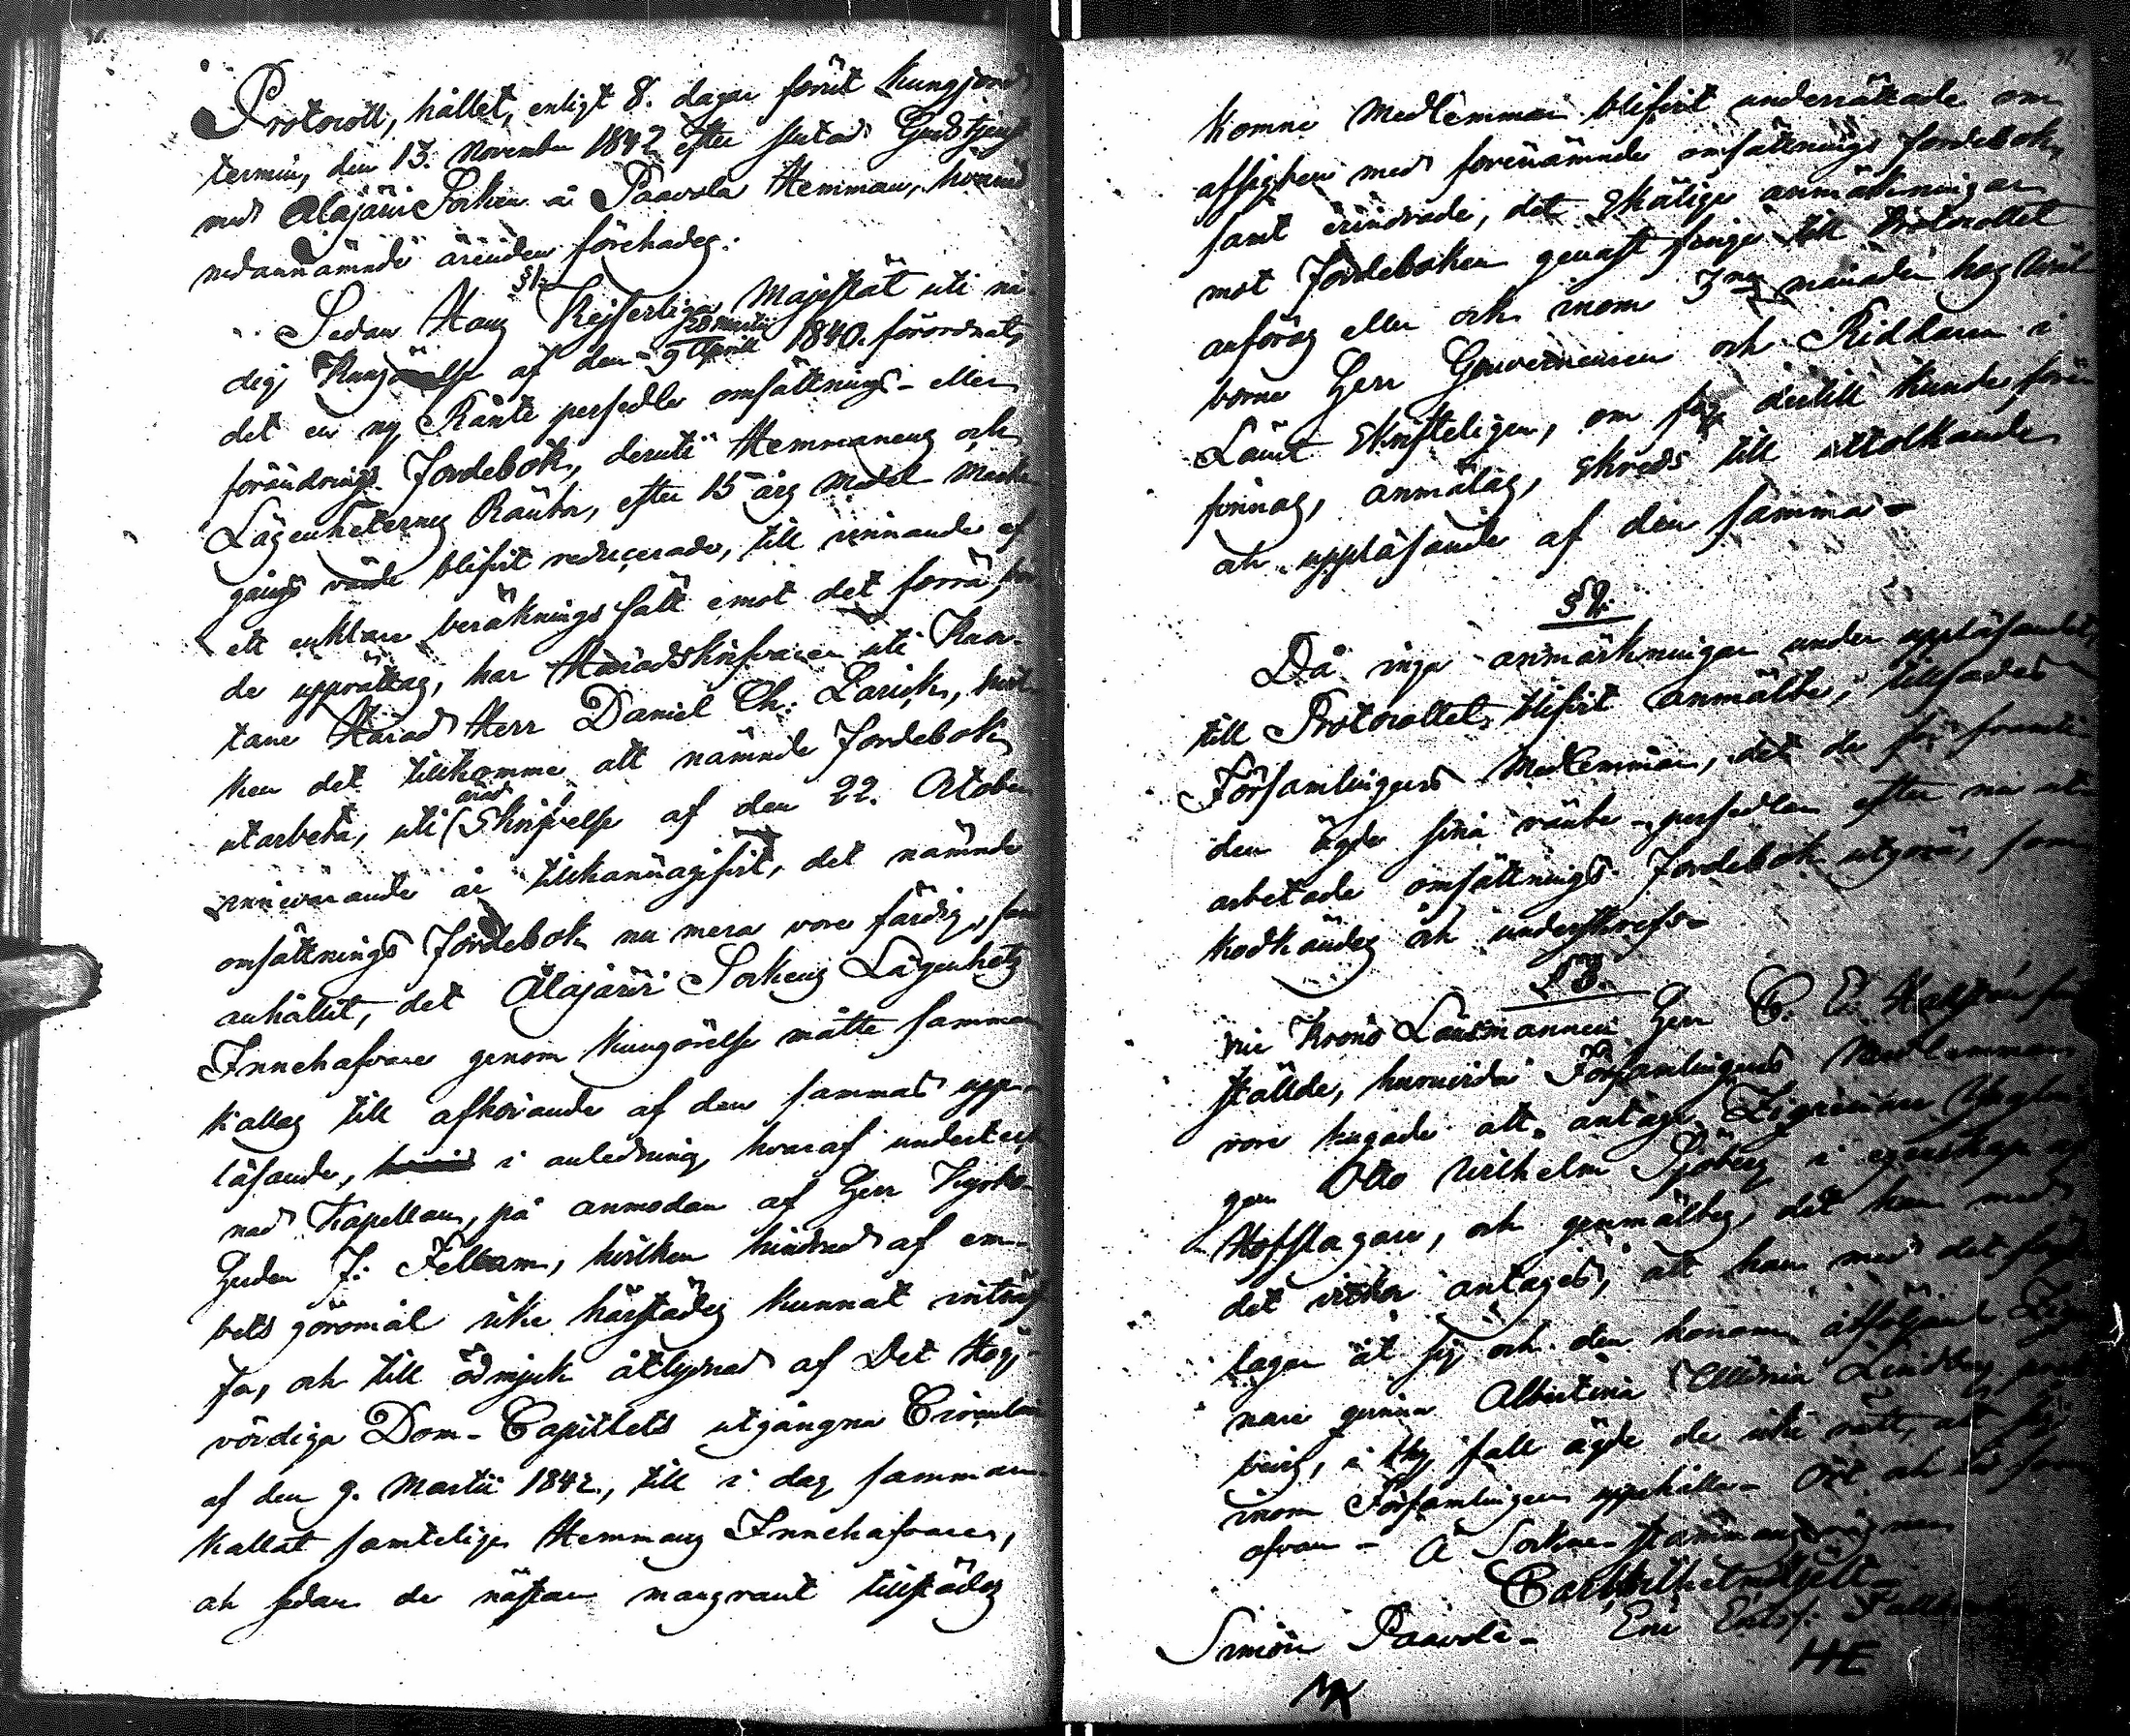 30.
Protocoll, hållet, enligt 8. dagar förut kungjord
termin, den 13. November 1842 efter slutad Gudstjenst
med Alajärvi Socken å Paavola Hemman, hvarvid
nedannämnde ärenden förehades.
§1.
Sedan Hans Kejserliga Majestät uti nå-
dig Kungörelse af den 28 Martii / 9 April 1840. förordnat,
det en ny Ränte persedle omsättnings- eller
förändrings Jordebok, deruti Hemmanens och
Lägenheternes Räntor, efter 15 års medel marke-
gångs värde blifvit reducerade, till vinnande af
ett enklare beräknings sätt emot det förra, bor-
de upprättas, har Häradsskrifvaren uti Kuor-
tane Härad Herr Daniel Ch: Larick, hvil-
ken det tillkomme att nämnde Jordebok
utarbeta, uti Skrifvelse af den 22. October
innevarande år tillkännagifvit, det nämnde
omsättnings Jordebok nu mera vore färdig, samt
anhållit, det Alajärvi Sockens Lägenhets
Innehafvare genom kungörelse måtte samman
kallas till afhörande af den sammas upp-
läsande, i anledning hvaraf underteck-
nad Kapellan, på anmodan af Herr Kyrko-
herden J: Fellman, hvilken hindrad af em-
bets göromål icke härstädes kunnat inträf-
fa, och till ödmjuk åtlydnad af Det Hög-
vördiga Dom-Capitlets utgångna Circulär
af den 9. Martii 1842., till i dag samman-
kallat samtelige Hemmans Innehafvare,
och sedan de nästan mangrant tillstädes
31.
komne Medlemmar blifvit underrättade om
afsigten med förenämnde omsättnings Jordebok,
samt erindrade, det skälige anmärkningar
mot Jordeboken genast finge till Protocollet
anföras eller och inom 3ne månader hos Wäl-
borne Herr Gouverneuren och Riddaren i
Länet Skrifteligen, om fog dertill kunde före-
finnas, anmälas, skreds till uttolkande
och uppläsande af den samma-
§2.
Då inga anmärkningar under uppläsandet,
till Protocollet blifvit anmälte, tillsades
Församlingens Medlemmar, det de för framti-
den ägde sina ränte-persedlar efter nu ut-
arbetade omsättnings Jordebok utgöra, som
godkändes och underskrefs-
§3.
Krono Länsmannen Herr C. E. fram
ställde, huruvida Församlingens Medlemmar
vore hugade att antaga Zigenare Ynglin-
gen Otto Wilhelm Sjöberg i egenskap af
Hofslagare, och genmältes, det han med
det vilkor antages, att han med det
tager åt sig och den honom åtföljande Zige-
nare qvinna Albertina Lindberg
bevis, i thy fall ägde de icke rätt, att sig
inom Församlingen uppehålla- Ort och tid som
ofvan- Å Sockne-stämmans vägnar
Carl Wilhelm
Simon Paavola- Eric
HE